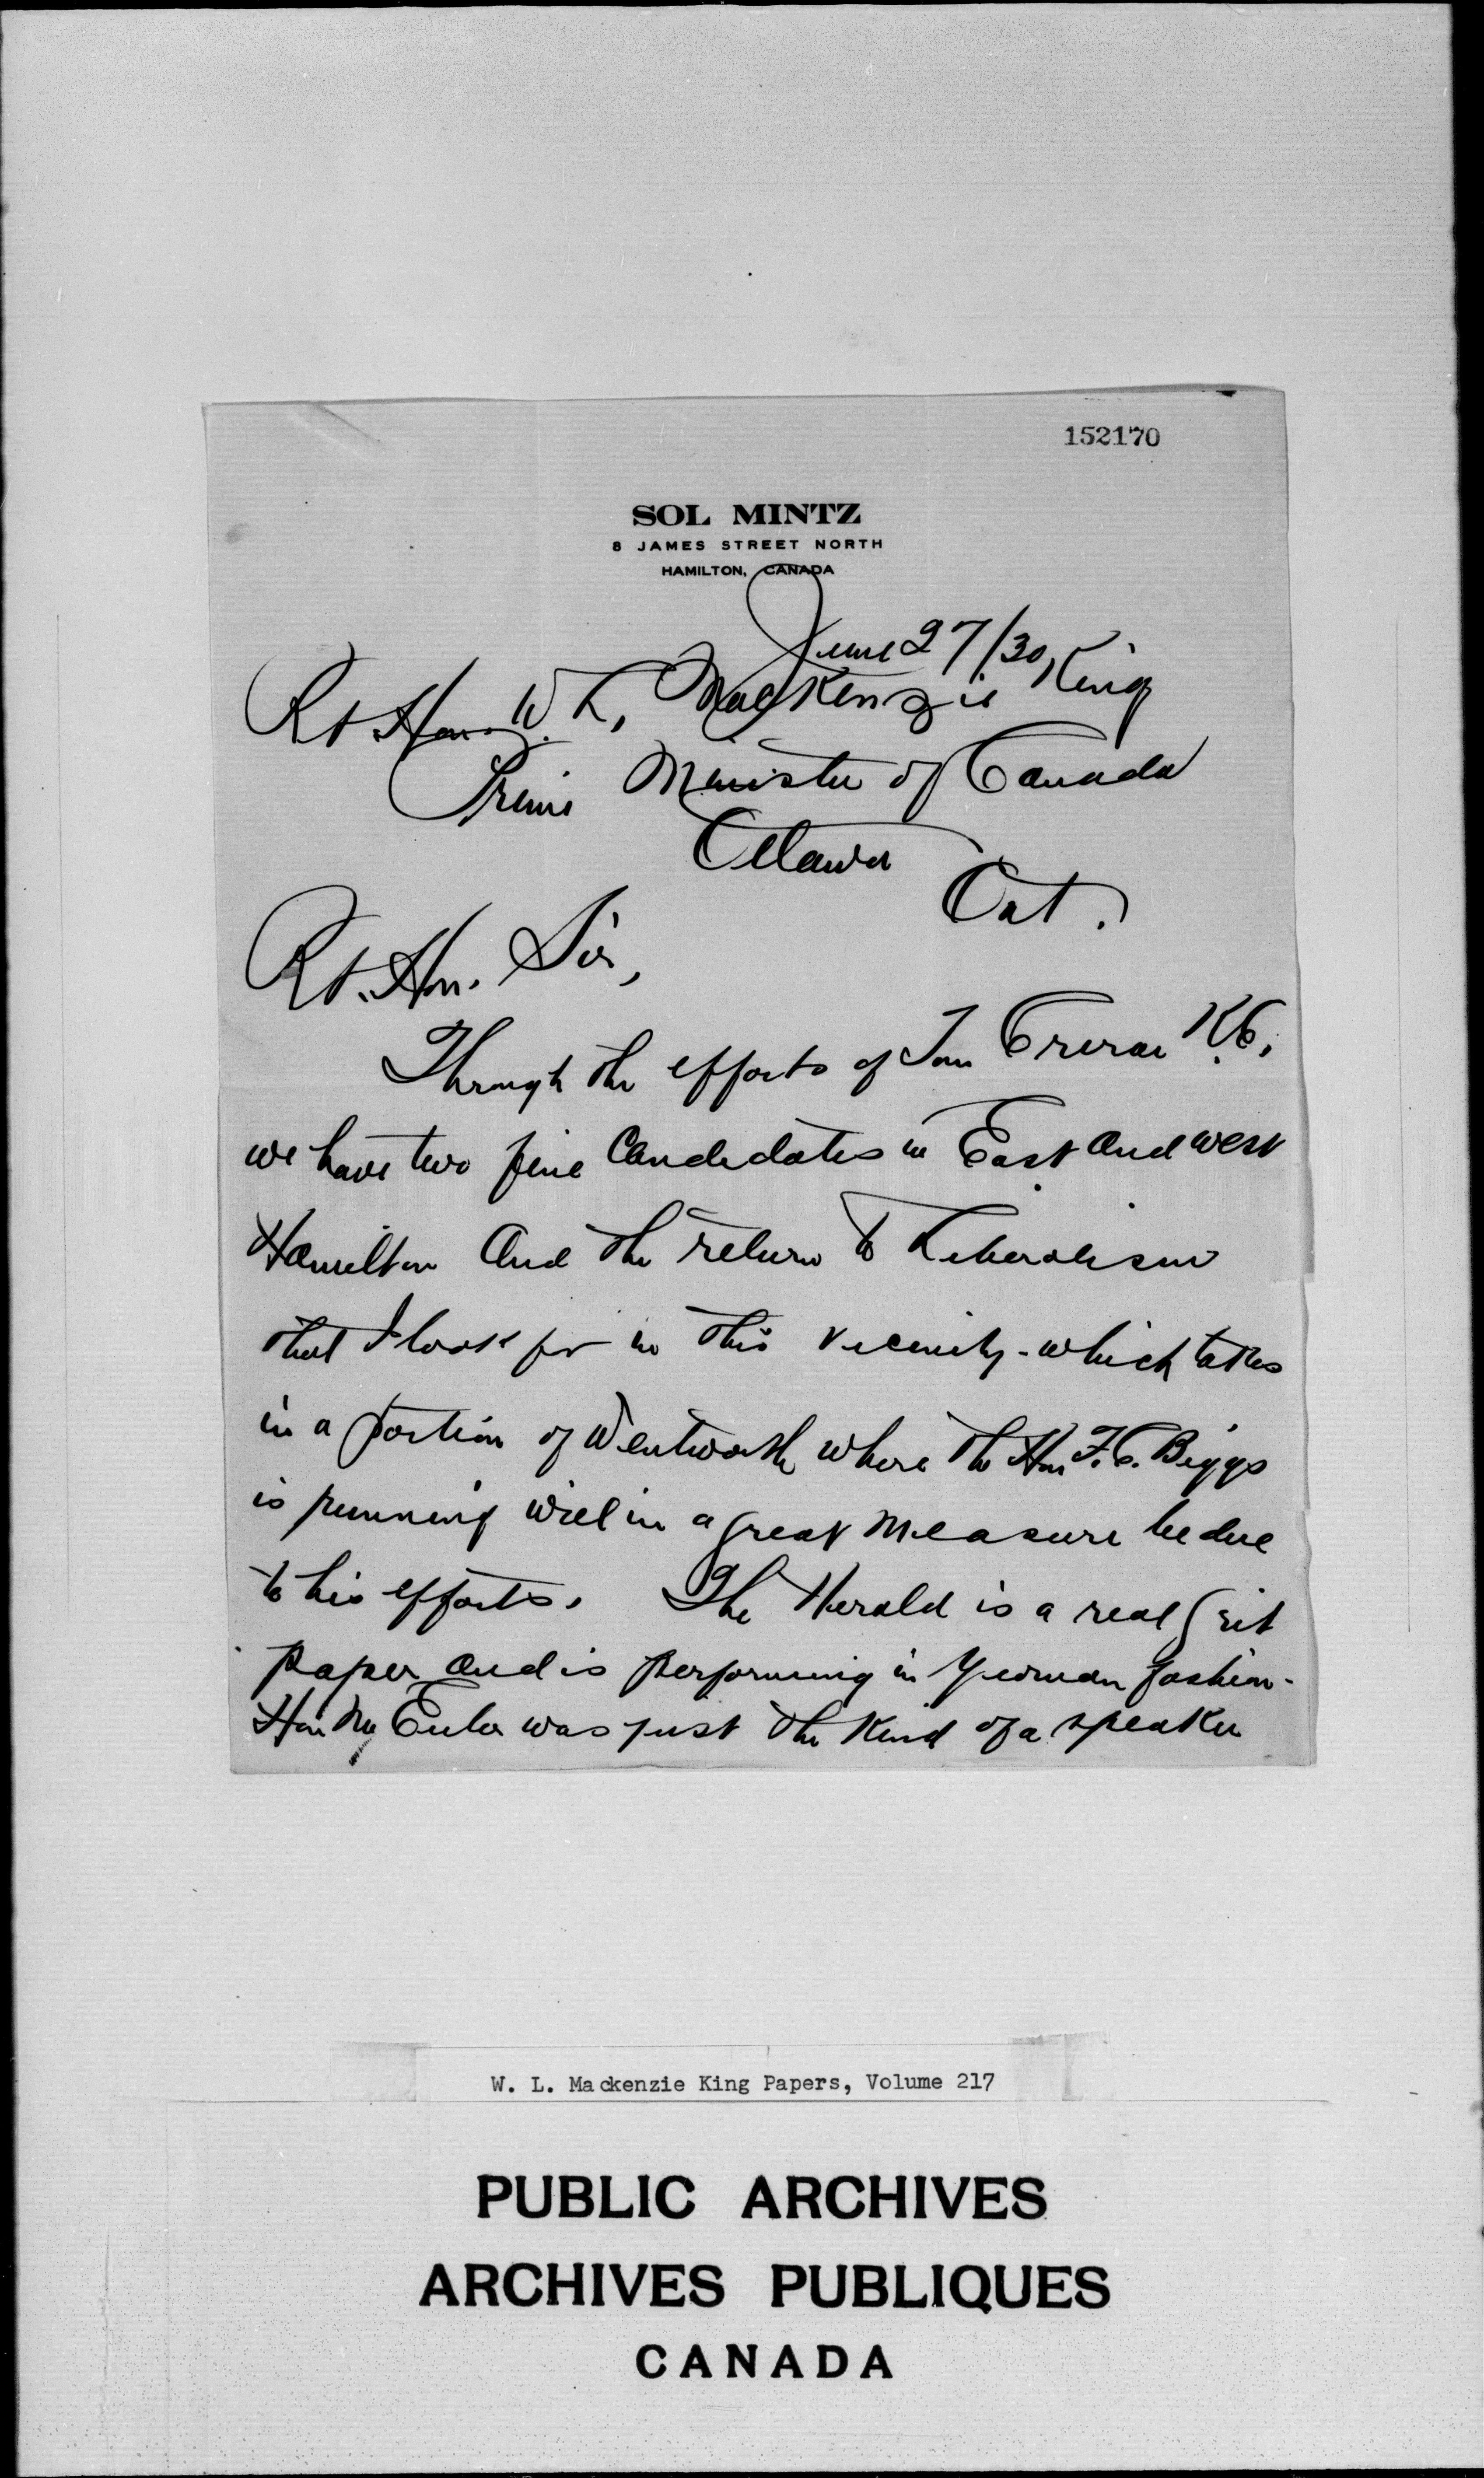 152170
SOL MINTZ
8 JAMES STREET NORTH
HAMILTON, CANADA
June 27/30,
Rt Hon. W. L. MacKenzie King
Prime Minister of Canada
Ottawa
Ont.
Rt. Hon. Sir,
Through the efforts of Tom Crerar K.C.
we have two fine Candidates in East and West
Hamilton and the return to Liberalism
that I look for in this vicinity - which takes
in a portion of Wentworth where the Hon F.C. Biggs
is running will in a great measure be due
to his efforts. The Herald is a real Grit
paper and is performing in Yeoman fashion -
Hon Mr Euler was just the kind of a speaker
W. L. Mackenzie King Papers, Volume 217
PUBLIC ARCHIVES
ARCHIVES PUBLIQUES
CANADA